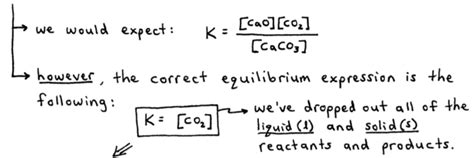 we would expect: K = [CaO][CO₂] / [CaCO₃]
however, the correct equilibrium expression is the
following: K = [CO₂] we've dropped out all of the
liquid(l) and solid(s)
reactants and products.